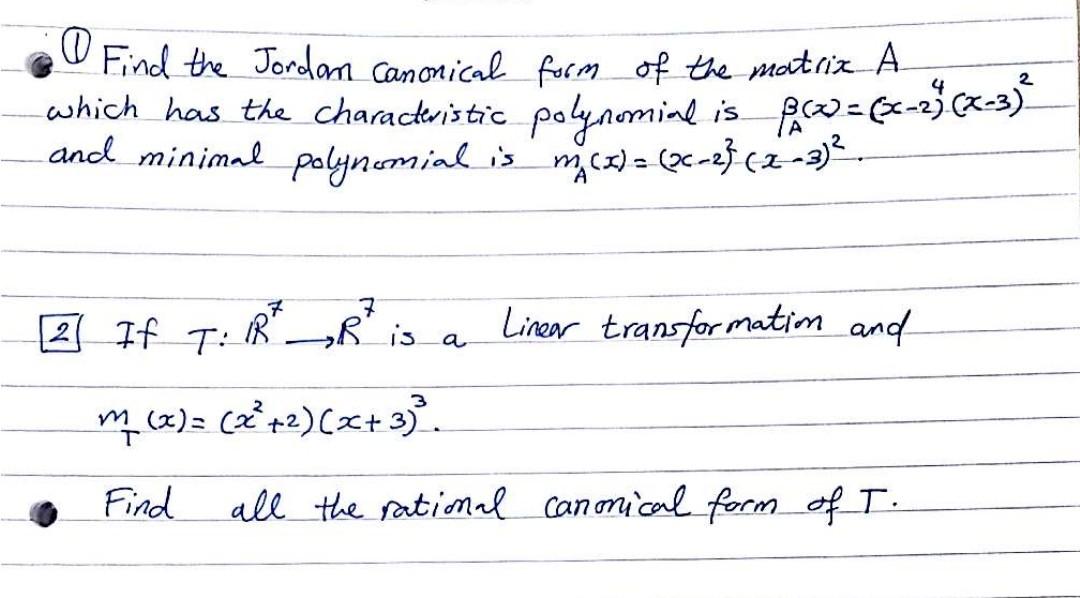 ① Find the Jordan canonical form of the matrix A
which has the characteristic polynomial is P_A(x) = (x-2)^4 (x-3)^2
and minimal polynomial is m_A(x) = (x-2)^2 (x-3)^2.
[2] If T: R^7 → R^7 is a Linear transformation and
m_T(x) = (x^2+2)(x+3)^3.
Find all the rational canonical form of T.